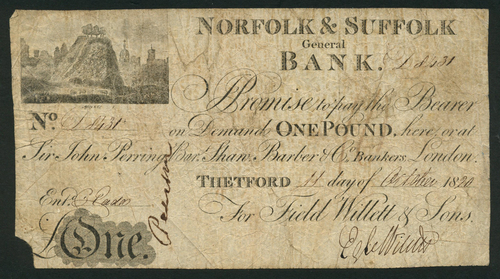 NORFOLK & SUFFOLK
General
BANK.
I Promise to pay the Bearer
No.
on Demand, ONE POUND, here, or at
Sir John Perring Bart. Shaw, Barber & Co. Bankers, London.
THETFORD day of October 1820
Ent.
For Field Willett & Sons.
£One.